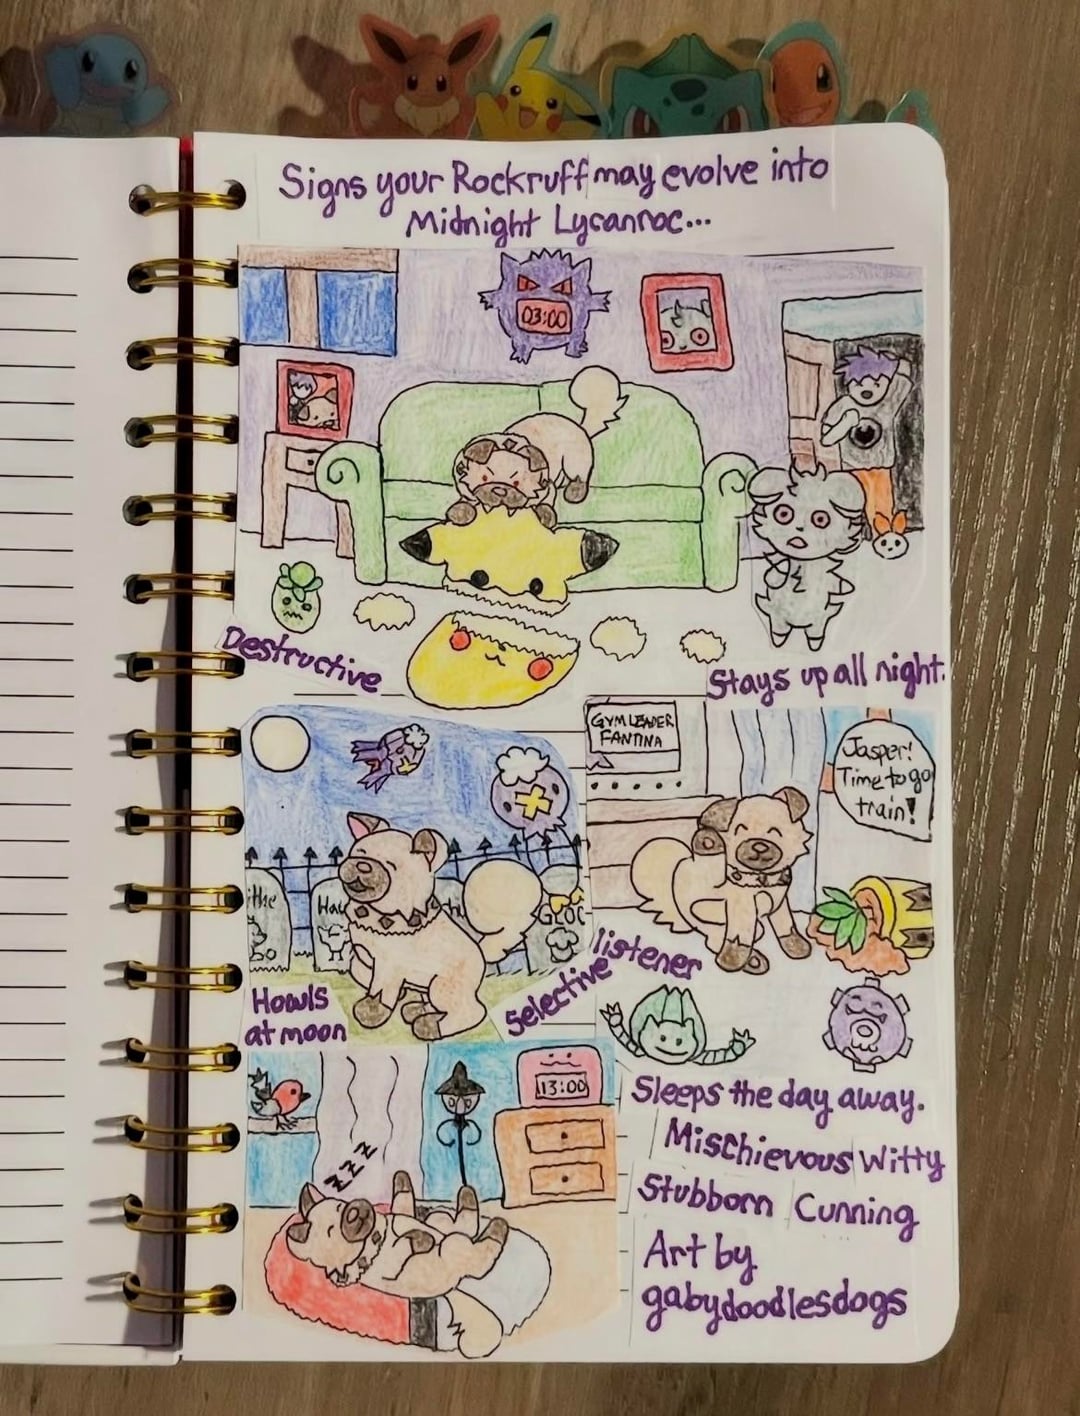 Signs your Rockruff may evolve into
Midnight Lycanroc...
03:00
Destructive
Stays up all night.
GYM LEADER
FANTINA
Jasper!
Time to go
train!
Howls
at moon
Selective
listener
zzz
13:00
Sleeps the day away.
Mischievous Witty
Stubborn Cunning
Art by
gabydoodlesdogs